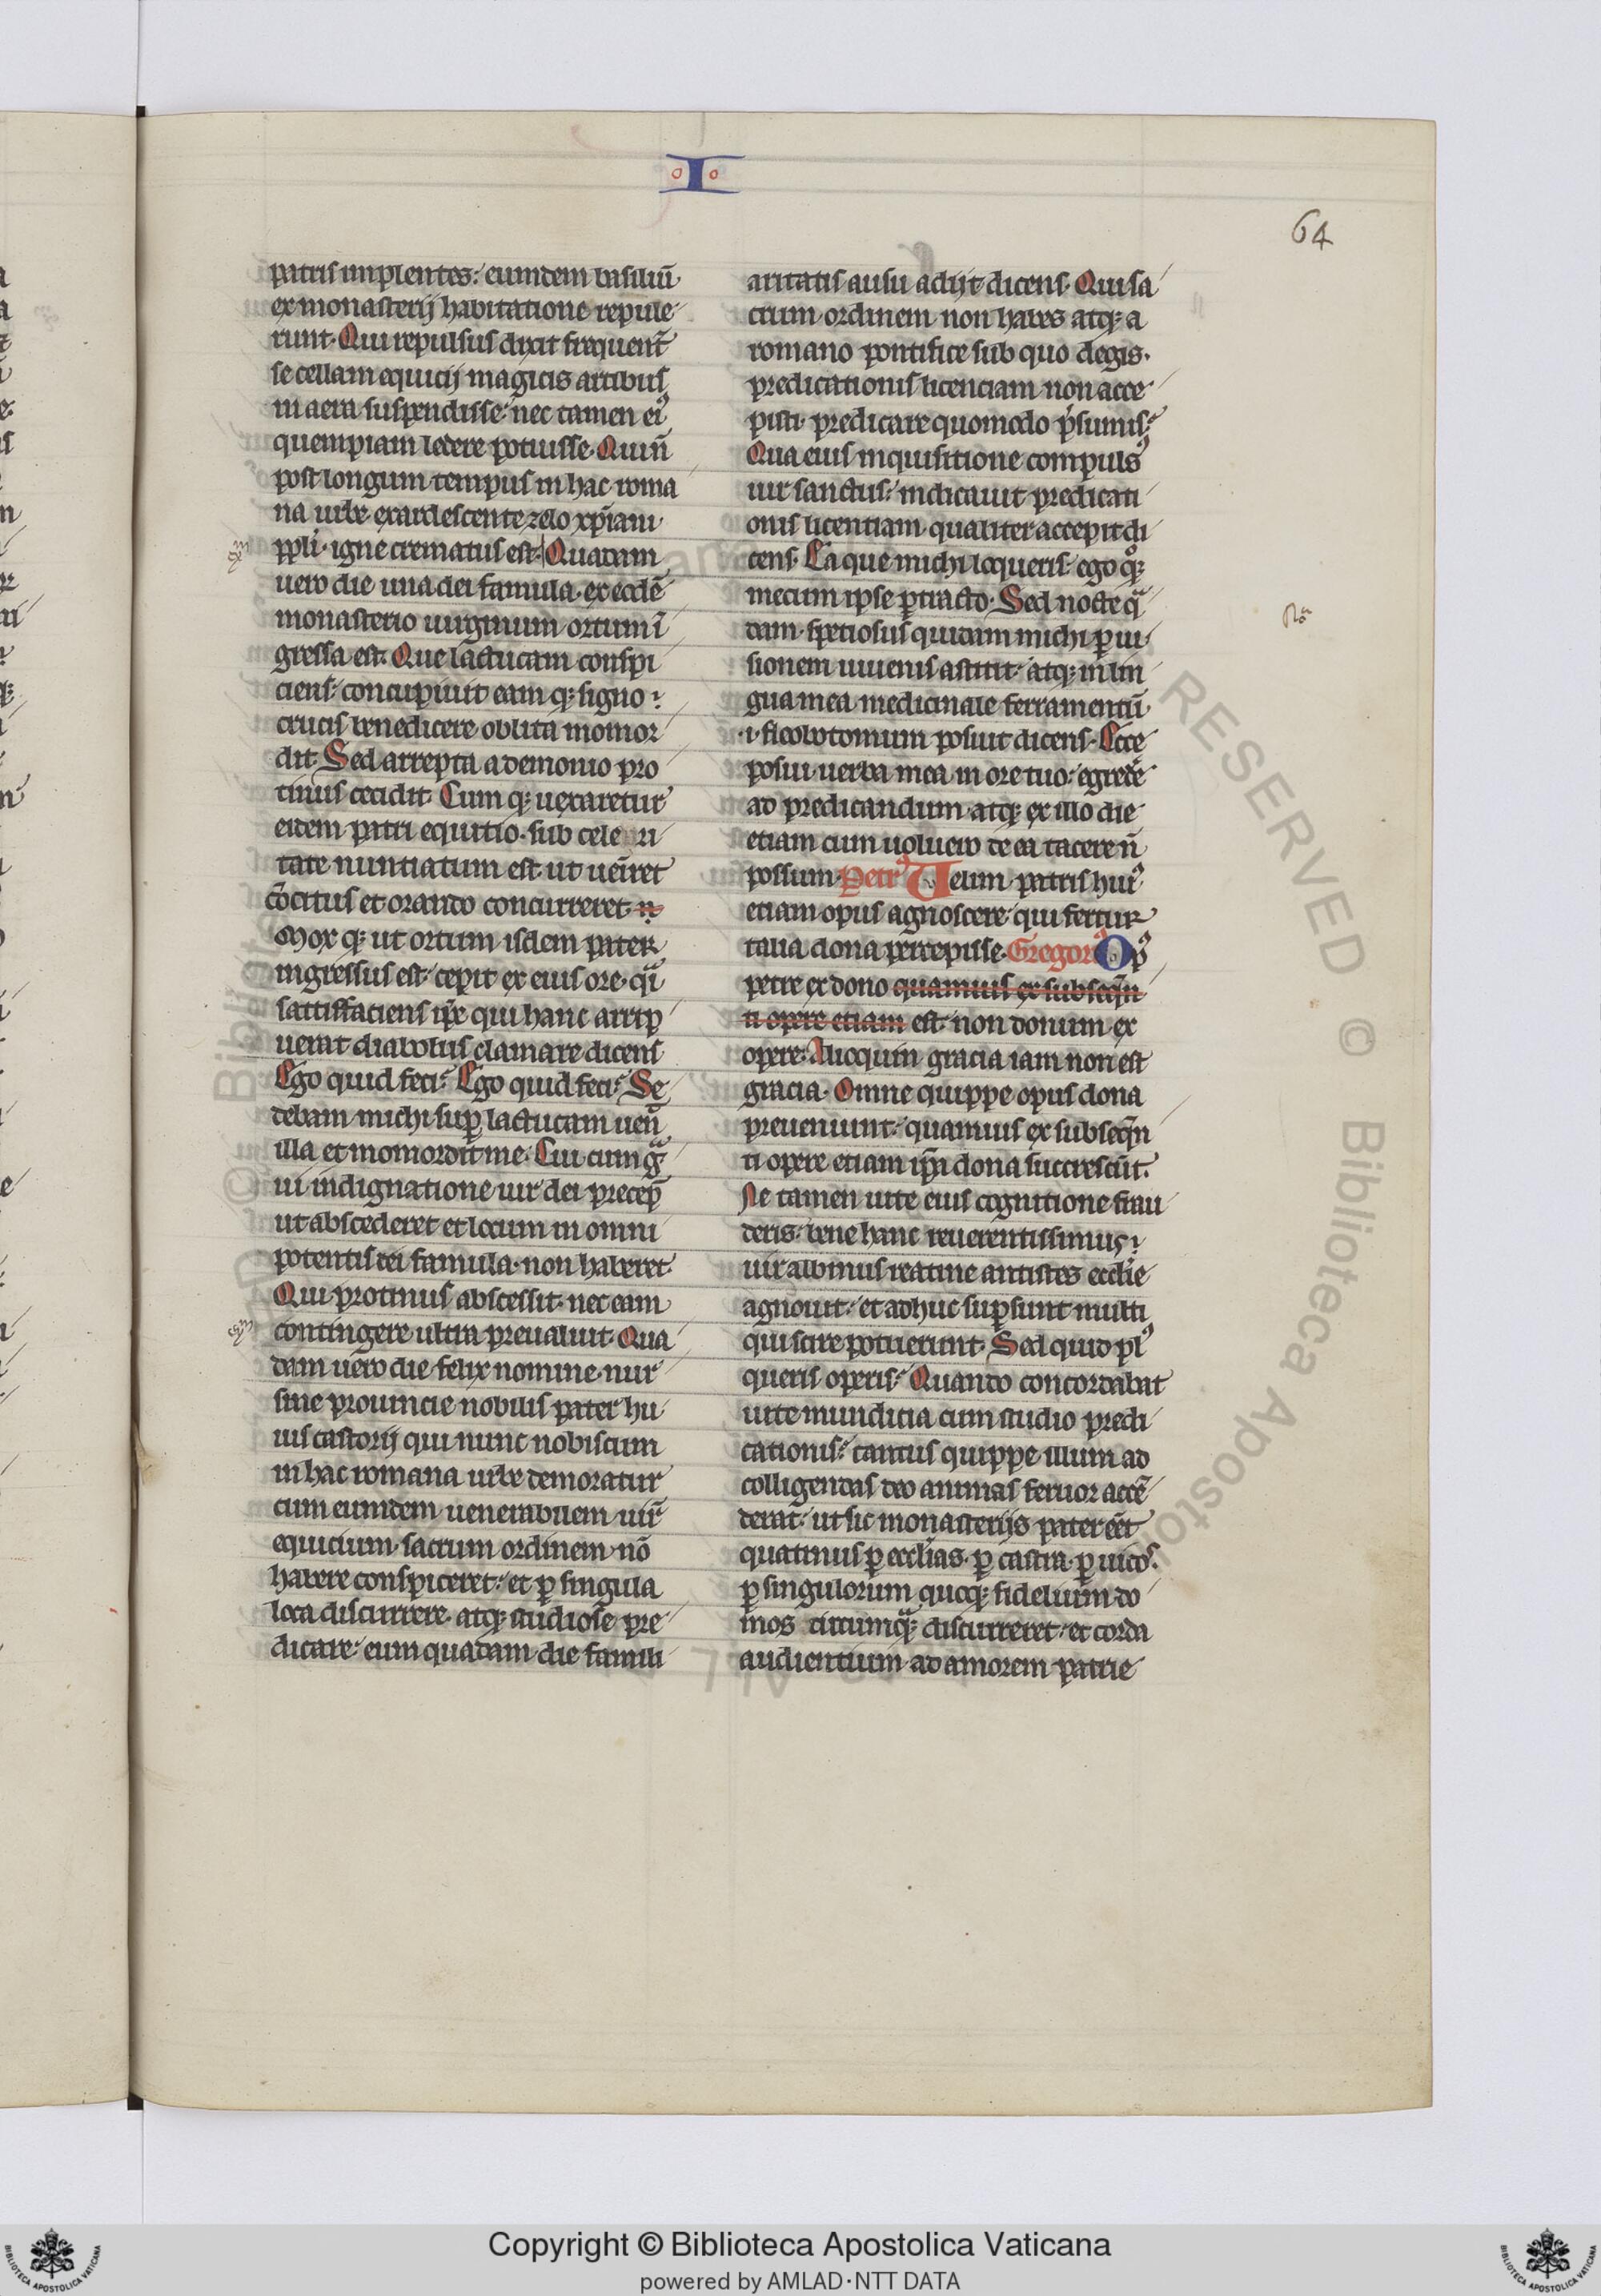 I
64
patris implentes: eumdem basiliū
ex monasterij habitatione repule
runt. Qui repulsus dixit frequenť
se cellam equicij magicis artibus
in aera suspendisse nec tamen ei᷒
quempiam ledere potuisse. Qui n̄
post longum tempus in hac roma
na urbe exardescente zelo xp̄iani
ppli igne crematus est. Quadam
uero die una dei famula ex eodē
monasterio uirginum ortum ī
gressa est. Que lactucam conspi
ciens concupiuit eamq; signo
crucis benedicere oblita momor
dit. Sed arrepta a demonio pro
tinus cecidit. Cumq; uexaretur
eidem patri equitio sub cele ri
tate nuntiatum est ut ueniret
cōcitus et orando concurreret
Moxq; ut ortum isdem pater
ingressus est cepit ex eius ore q̄i
sattisfaciens ip̄e qui hanc arrip
uerat diabolus clamare dicens
Ego quid feci? Ego quid feci? Se
debam michi sup lactucam ueñ
illa et momordit me. Cui cum gͣ
ui indignatione uir dei precep̄
ut abscederet et locum in omni
potentis dei famula non haberet
Qui protinus abscessit nec eam
contingere ultra preualuit. Qua
dam uero die felix nomine nur
sine prouincie nobilis pater hu
ius castorij qui nunc nobiscum
in hac romana urbe demoratur
cum eumdem uenerabilem uir̄
equicium sacrum ordinem nō
habere conspiceret et p singula
loca discurrere atq; studiose pre
dicare eum quadam die famili
aritatis ausu adijt dicens. Qui sa
crum ordinem non habes atq; a
romano pontifice sub quo degis
predicationis licenciam non acce
pisti predicare quomodo p̄sumis?
Qua eius inquisitione compuls᷒
uir sanctus indicauit predicati
onis licentiam qualiter accepit di
cens. Ea que michi loqueris ego qͦq;
mecum ipse ptracto. Sed nocte qͣ
dam spetiosus quidam michi p ui
sionem iuuenis astitit atq; in lin
gua mea medicinale ferramentū
.i. flebotomum posuit dicens. Ecce
posui uerba mea in ore tuo egredē
ad predicandum atq; ex illo die
etiam cum uoluero de ea tacere n̄
possum. Petr᷒ Uelim patris hui᷒
etiam opus agnoscere qui fertur
talia dona percepisse. Gregor᷒ Op᷒
petre ex dono quamuis ex subseq̄n
ti opere etiam est non donum ex
opere. Alioquin gracia iam non est
gracia. Omne quippe opus dona
preueniunt quamuis ex subseq̄n
ti opere etiam ip̄a dona succrescūt.
Ne tamen uite eius cognitione frau
deris bene hanc reuerentissimus
uir albinus reatine antistes ecclīe
agnouit et adhuc supsunt multi
qui scire potuerunt. Sed quid pl᷒
queris operis? Quando concordabat
uite mundicia cum studio predi
cationis? tantus quippe illum ad
colligendas deo animas feruor accē
derat ut sic monasterijs pater eēt
quatinus p ecclīas p castra p uicos
p singulorum quoq; fidelium do
mos circumqͣq; discurreret et corda
audientium ad amorem patrie
Copyright © Biblioteca Apostolica Vaticana
powered by AMLAD·NTT DATA